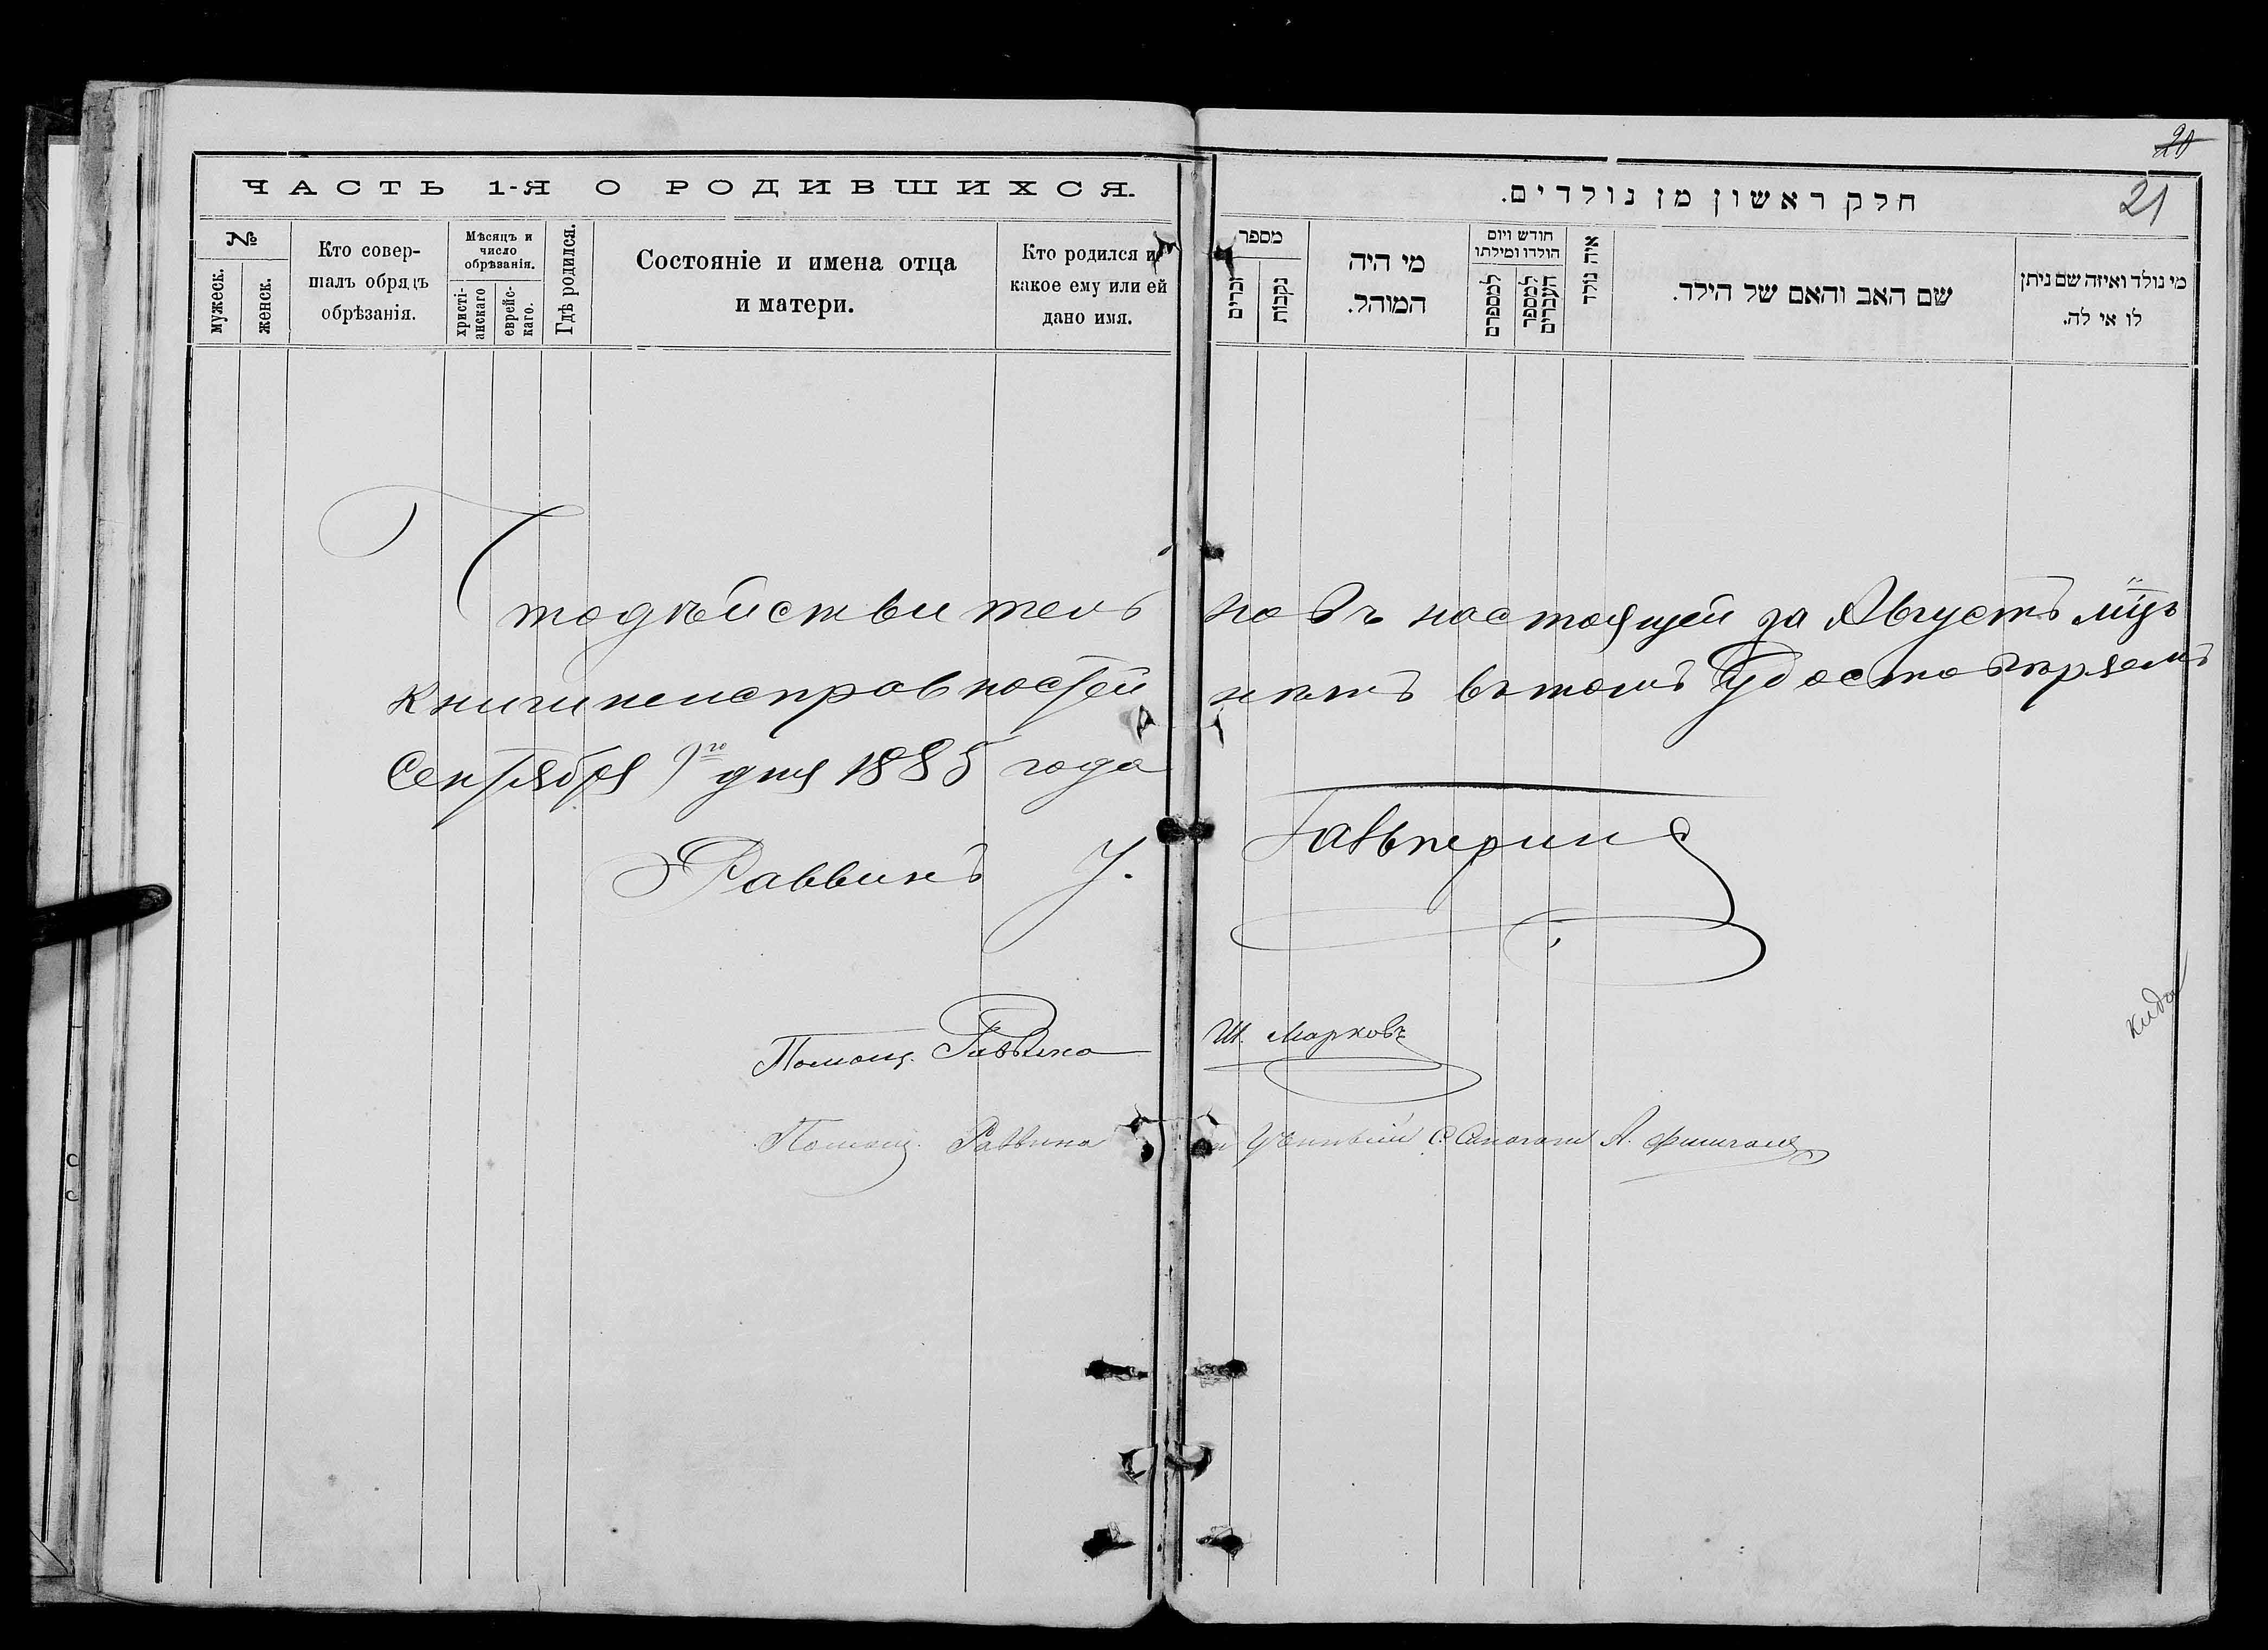 20
21
ЧАСТЬ 1-Я О РОДИВШИХСЯ.
№
мужеск.
женск.
Кто совер-
шалъ обрядъ
обрѣзанія.
Мѣсяцъ и
число
обрѣзанія.
христі-
анскаго
еврейс-
каго.
Гдѣ родился.
Состояніе и имена отца
и матери.
Кто родился и
какое ему или ей
дано имя.
חלק ראשון מן נולדים.
מספר
זכרים
נקבות
מי היה
המוהל.
חודש ויום
הולדו ומילתו
למספרם
למספר
העברים
איה נולד
שם האב והאם של הילד.
מי נולד ואיזה שם ניתן
לו אי לה.
Что дѣйствительно въ настоящей за Августъ мцъ
книги неисправностей нѣтъ въ томъ Удостовѣряемъ
Сентября 1го дня 1885 года
Раввинъ У. Гальперинъ
Помощ. Раввина Ш. Марковъ
Помощ. Раввина и Ученный С. Синагоги А. Фишгойт